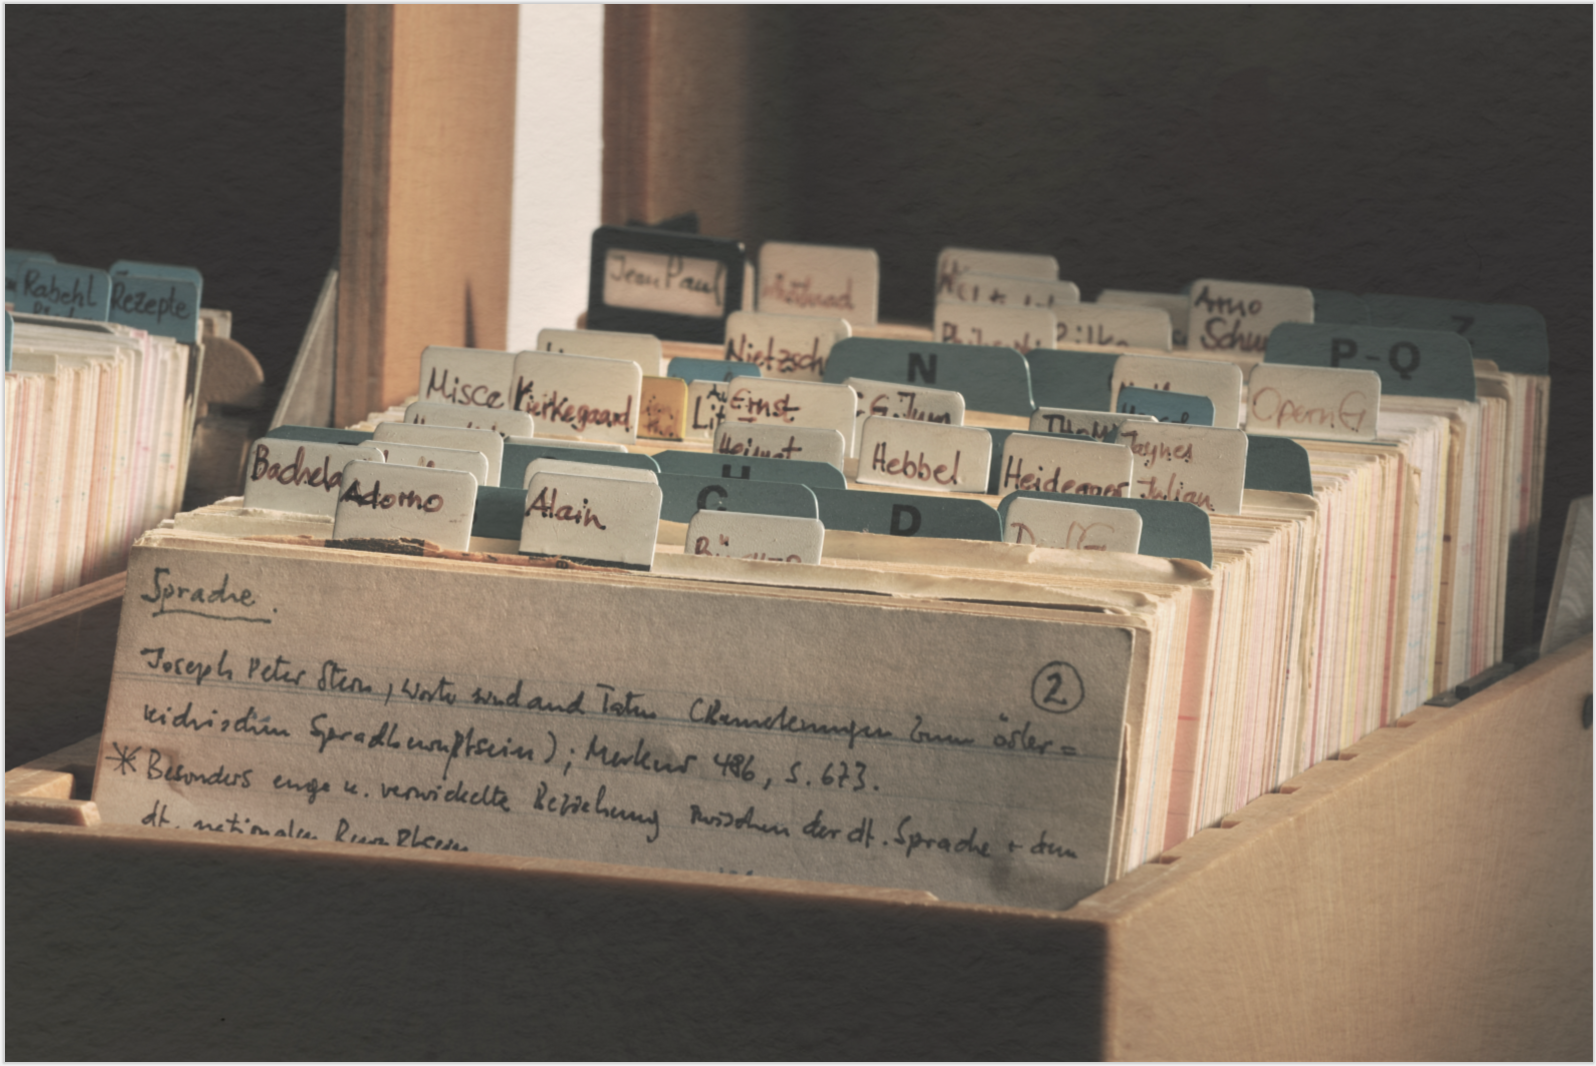 Rabehl
Rezepte
Jean Paul
Arno
Schu
Z
Nietzsch
N
P-Q
Misce
Kierkegaard
Lit
Ernst
G. Jun
OpernG
Heimat
Hebbel
Heidegger
Jaynes
Julian
Bachela
Adorno
Alain
H
C
D
Sprache.
2
Joseph Peter Stern, Worte sind auch Taten (Bemerkungen zum öster=
reichischen Sprachbewußtsein); Merkur 486, S. 673.
* Besonders enge u. verwickelte Beziehung zwischen der dt. Sprache + dem
dt. nationalen Bewußtsein